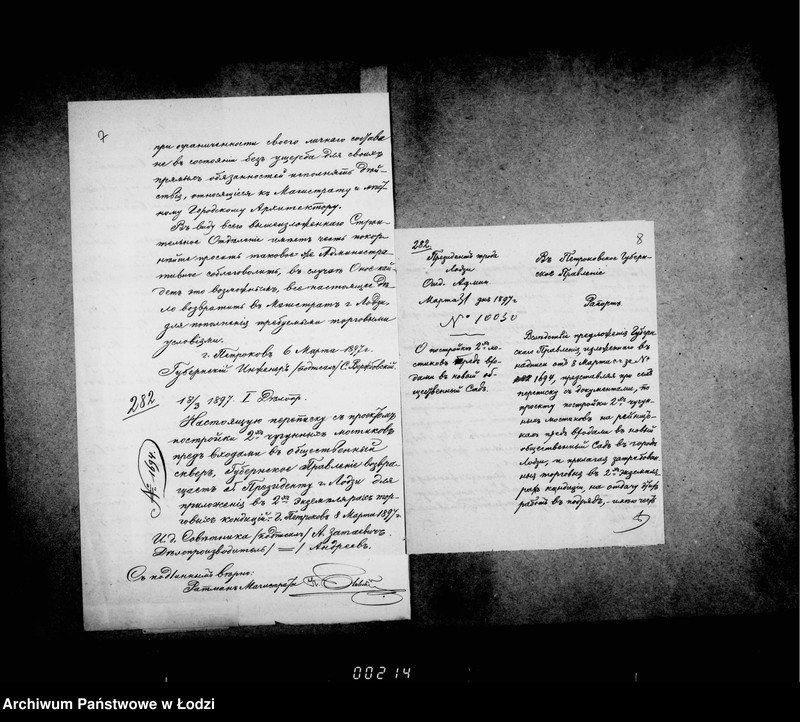 7
при ограниченности своего личнаго состава
не въ состоянiи безъ ущерба для своихъ
прямыхъ обязанностей исполнять дѣй-
ствiя, относящiеся къ Магистрату и мѣст-
ному Городскому Архитектору.
Въ виду всего вышеизложеннаго Строи-
тельное Отдѣленiе имѣетъ честь покор-
нѣйше просить таковое же Администра-
тивное соблаговолить, въ случаѣ Оное най-
детъ это возможнымъ, все настоящее дѣ-
ло возвратить въ Магистратъ г. Лодзи,
для пополненiя требуемыми торговыми
условiями.
г. Петроковъ 6 Марта 1897 г.
Губернскiй Инженеръ /подписалъ/ С.
282 15/3 1897. I Дѣлпр.
Настоящую переписку съ проектомъ
постройки 2хъ чугунныхъ мостиковъ
предъ входами въ общественный
скверъ, Губернское Правленiе возвра-
щаетъ Президенту г. Лодзи для
приложенiя въ 2хъ экземплярахъ тор-
говыхъ кондицiй. г. Петроковъ 8 Марта 1897 г.
№ 1694
И. д. Совѣтника /подписалъ/ А. Затаевичъ.
Дѣлопроизводитель / = / Андреевъ.
Съ подлиннымъ вѣрно:
Ратманъ Магистрата
8
282
Президентъ города
Лодзи
Отд. Админ
Марта 31 дня 1897 г
№ 10030
О постройкѣ 2хъ мо-
стиковъ предъ вхо-
дами въ новый об-
щественный Садъ.
Въ Петроковское Губерн-
ское Правленiе
Рапортъ
Вслѣдствiе предложенiя Губерн-
скаго Правленiя, изложеннаго въ
надписи отъ 8 Марта с. г. за №
1694, представляя при семъ
переписку съ документами, по
проекту постройки 2хъ чугун-
ныхъ мостиковъ на
предъ входами въ новый
общественный Садъ въ городѣ
Лодзи, и прилагая затребован-
ныя торговыя въ 2хъ экземпля-
рахъ кондицiи, на отдачу
работъ въ подрядъ, – имѣю честь
00214
Archiwum Państwowe w Łodzi